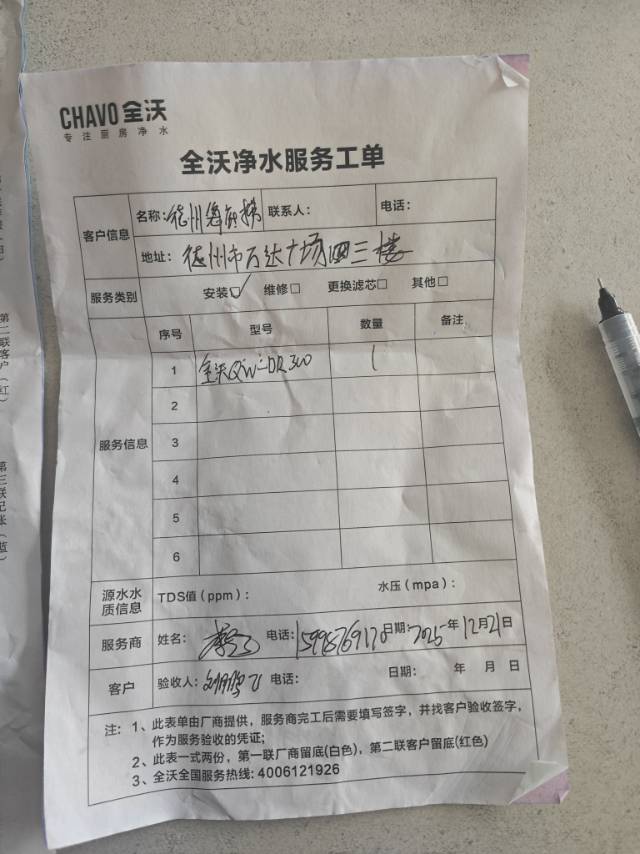 CHAVO 全沃
专注厨房净水
全沃净水服务工单
客户信息 名称: 德州 联系人: 电话:
地址: 德州市万达广场四三楼
服务类别 安装☑ 维修□ 更换滤芯□ 其他□
服务信息 序号 型号 数量 备注
1 全沃QW-DR300 1
2
3
4
5
6
源水水质信息 TDS值(ppm): 水压(mpa):
服务商 姓名: 电话: 日期: 2025年12月21日
客户 验收人: 电话: 日期: 年 月 日
注: 1、此表单由厂商提供，服务商完工后需要填写签字，并找客户验收签字，
作为服务验收的凭证;
2、此表一式两份，第一联厂商留底(白色)，第二联客户留底(红色)
3、全沃全国服务热线: 4006121926
第二联客户(红)
第三联记账(蓝)